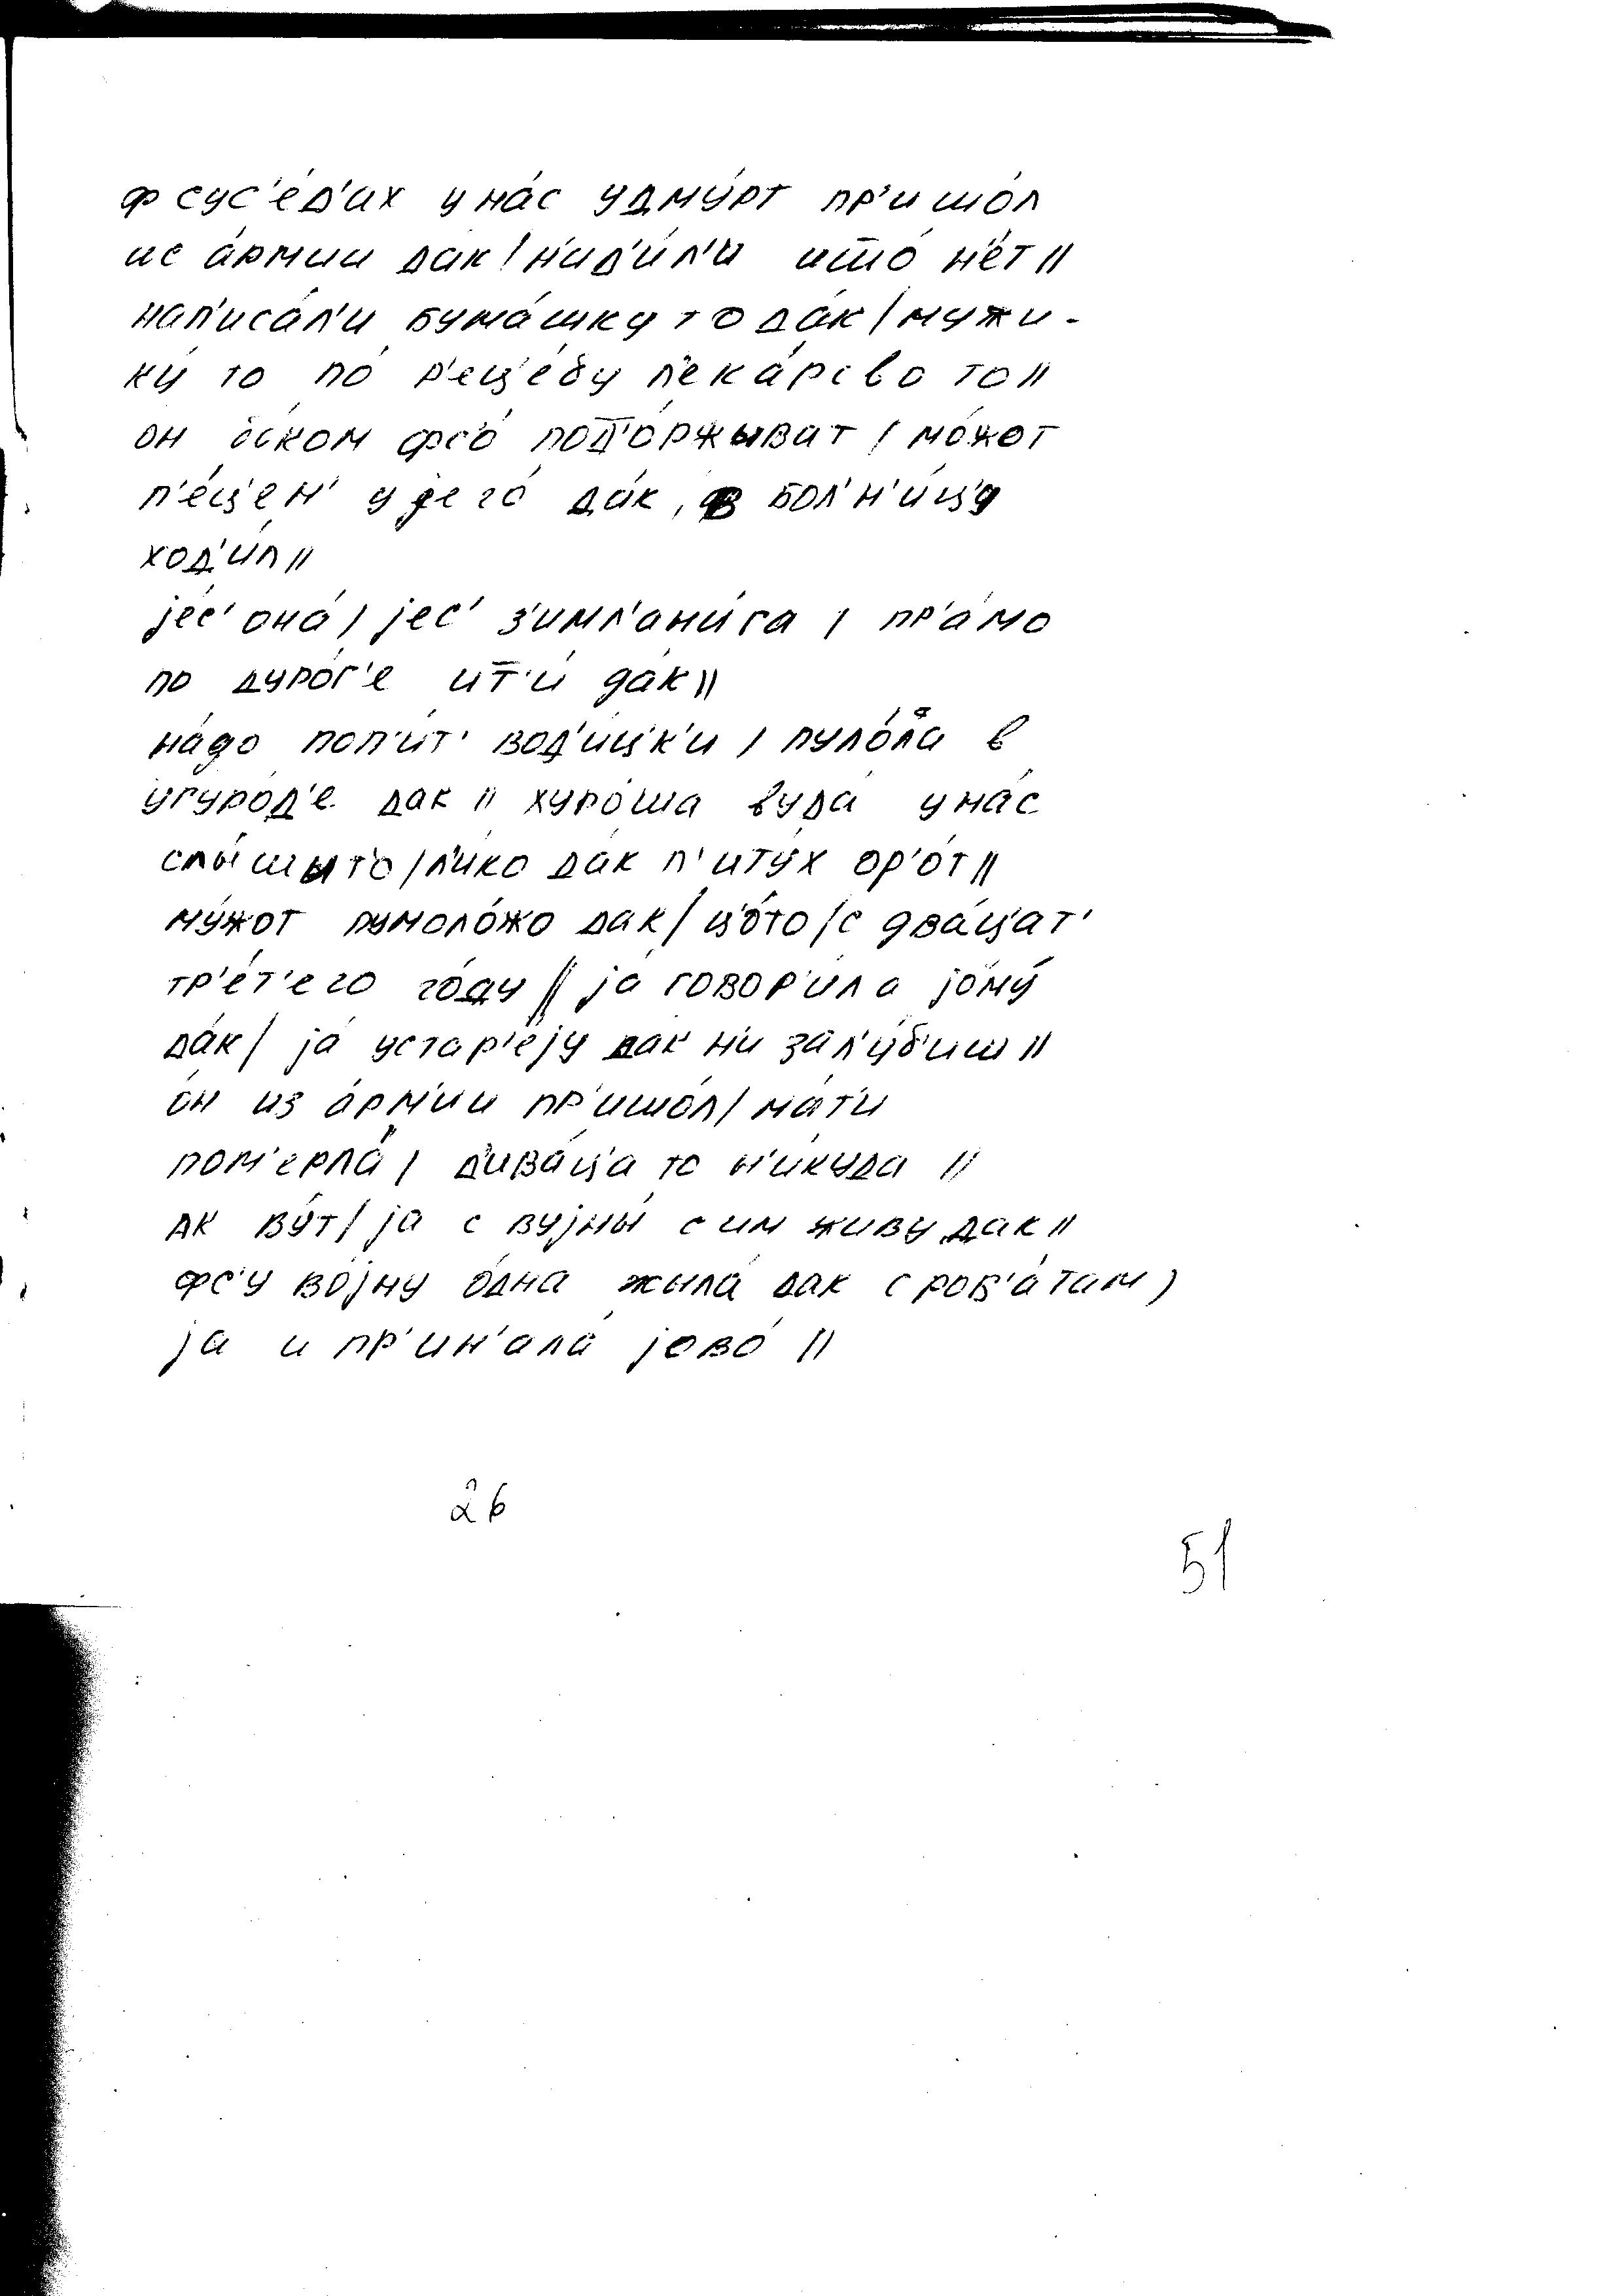 ф сус'е́д'ах у на́с удму́рт пр'ишо́л
ис а́рмии дак / н'ид'и́л'и што́ н'е́т //
нап'иса́л'и бума́шку то да́к / мужи-
ку́ то по́ р'ец'е́бу л'ека́рсво то //
он о́ском фс'о́ под'о́ржыват / мо́жот
п'е́ц'ен' у jего́ да́к, в бол'н'и́ц'у
ход'и́л //
jе́с' она́ / jес' з'имл'ани́га / пр'а́мо
по дуро́г'е ит'и́ да́к //
на́до поп'и́т' вод'и́ц'к'и / пуло́ла в
угуро́д'е дак // хуро́ша вуда́ у на́с
слы́шыто / л'и́ко дак п'иту́х ор'о́т //
му́жот пумоло́жо дак / ц'о́то / с два́ц'ат'
тр'е́т'его го́ду // jа говор'и́ла jому́
да́к / jа́ устар'е́jу дак н'и зал'у́б'иш //
о́н из а́рм'ии пр'ишо́л / ма́т'и
пом'ерла́ / д'ива́ц'а то н'и́куда //
дк ву́т / jа с вуjны́ с им живу́ дак //
фс'у во́jну о́дна жыла́ дак с роб'а́там /
jа и пр'ин'ала́ jово́ //
26
51